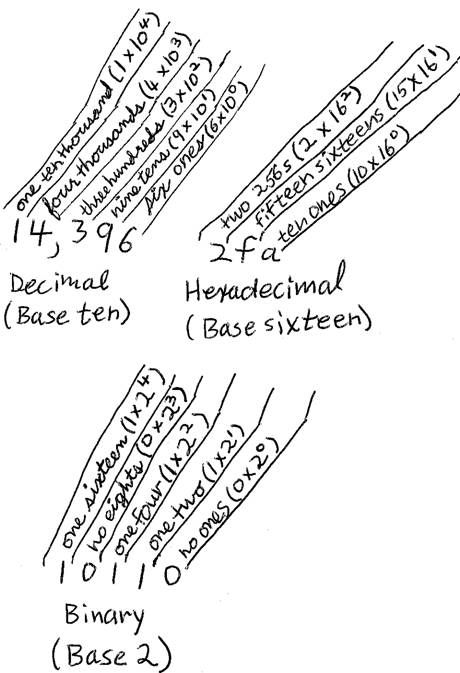 one ten thousand (1 x 10⁴)
four thousands (4 x 10³)
three hundreds (3 x 10²)
nine tens (9 x 10¹)
six ones (6 x 10⁰)
14,396
Decimal
(Base ten)
two 256s (2 x 16²)
fifteen sixteens (15 x 16¹)
ten ones (10 x 16⁰)
2fa
Hexadecimal
(Base sixteen)
one sixteen (1 x 2⁴)
no eights (0 x 2³)
one four (1 x 2²)
one two (1 x 2¹)
no ones (0 x 2⁰)
10110
Binary
(Base 2)